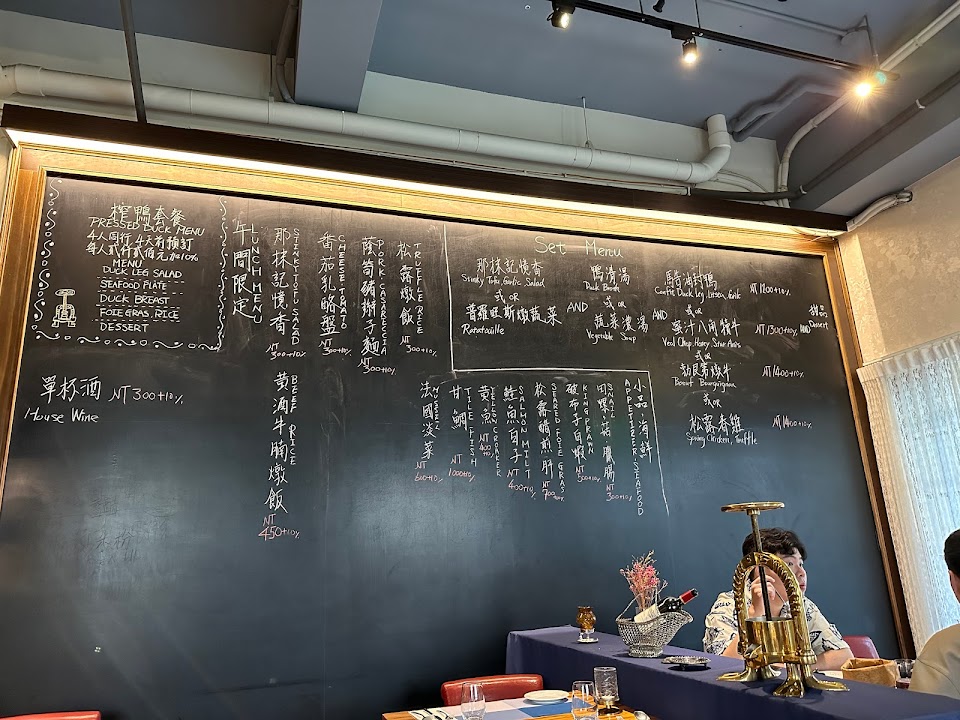 榨鴨套餐
PRESSED DUCK MENU
4人同行 4天前預訂
每人貳仟貳佰元加10%
MENU
DUCK LEG SALAD
SEAFOOD PLATE
DUCK BREAST
FOIE GRAS, RICE
DESSERT
單杯酒 NT 300+10%
House Wine
LUNCH MENU
午間限定
STINKY TOFU SALAD
那抹記憶香
NT 300+10%
CHEESE TOMATO
番茄乳酪盤
NT 300+10%
PORK CASARECCIA
NT 300+10%
TRUFFLE RICE
松露燉飯
NT 300+10%
BEEF RICE
黃酒牛腩燉飯
NT 450+10%
Set Menu
那抹記憶香
Stinky Tofu Garlic Salad
或 OR
普羅旺斯燉蔬菜
Ratatouille
AND
鴨清湯
Duck Broth
或 OR
蔬菜濃湯
Vegetable Soup
AND
油封鴨 NT 1200+10%
Confit Duck Leg
或 OR
NT 1300+10%
Veal Chop, Honey Star Anis
或 OR
NT 1400+10%
Boeuf Bourguignon
或 OR
松露春雞 NT 1400+10%
Spring Chicken, Truffle
AND
甜品
Dessert
小品海鮮
APPETIZER SEAFOOD
SNAIL
田螺菇臘腸
NT 300+10%
KING PRAWN
破布子白蝦
NT 500+10%
SEARED FOIE GRAS
松香醋煎肝
NT 700+10%
SALMON MILT
鮭魚白子
NT 400+10%
YELLOW CROAKER
黃魚
NT 400+10%
TILE FISH
甘鯛
NT 1000+10%
MUSSEL
法國淡菜
NT 600+10%